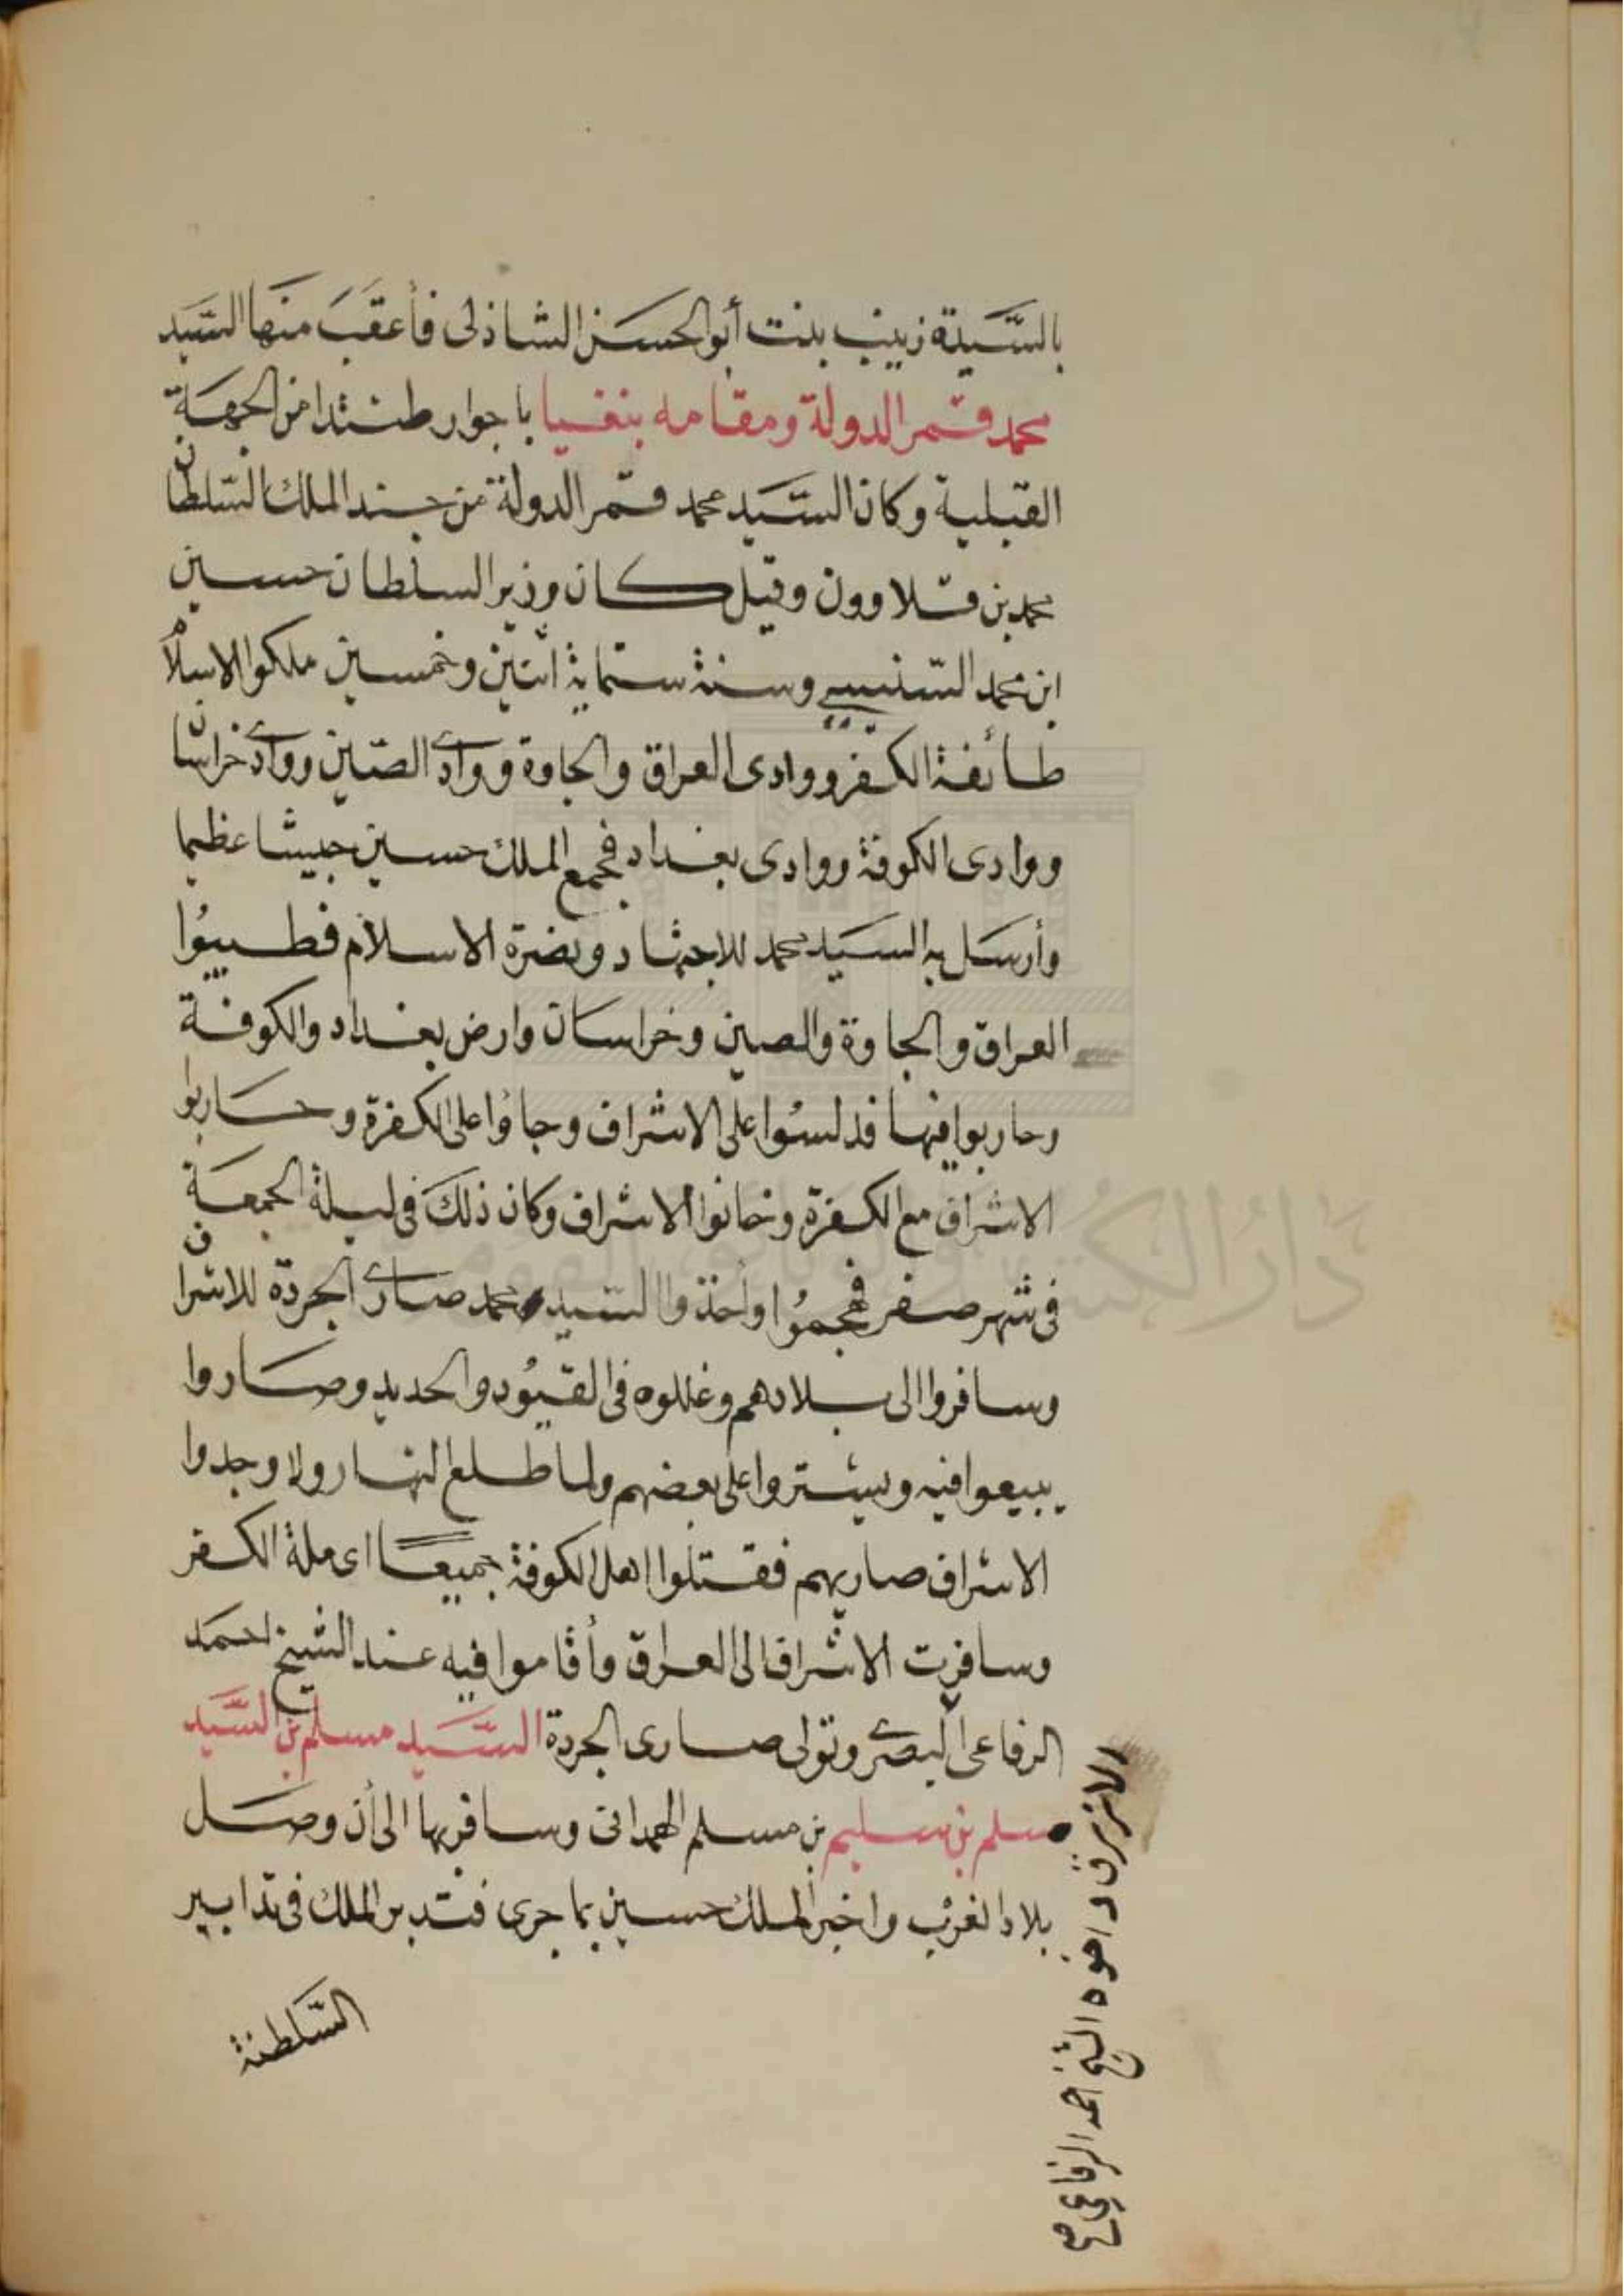 بالسَّيدة زينب بنت أبو الحسن الشاذلى فأعقَبَ منها السَّيد
محمد قمر الدولة ومقامه بنفيا باجوار طنتدا من الجهة
القبلية وكان السَّيد محمد قمر الدولة من جند الملك السّلطان
محمد بن قلاوون وقيل كان وزير السلطان حسين
ابن محمد السّنبسي وسنة ستماية اتنين وخمسين ملكوا الاسلام
طائفة الكفر ووادى العراق والجاوة ووادى الصّين ووادى خراسان
ووادى الكوفة ووادى بغداد فجمع الملك حسين جيشا عظيما
وأرسَل به السيَد محمد للاجتهاد ونصرة الاسلام فطيبُوا
العراق والجاوة والصين وخراسان وارض بغداد والكوفة
وحاربوا فيها فدلسُوا على الاشراف وجاؤا على الكفرة وحاربوا
الاشراف مع الكفرة وخانوا الاشراف وكان ذلكَ فى ليلة الجمعة
فى شهر صفر فهجمُوا وأخذوا السَيد محمد صارى الجردة للاشراف
وسافروا الى بلادهم وغللوه فى القيُود والحديد وصاروا
يبيعوا فيه ويشتروا على بعضهم ولما طلع النهار ولا وجدوا
الاشراف صاريهم فقتلوا اهل الكوفة جميعًا اى ملة الكفر
وسافرت الاشراف الى العراق وأقاموا فيه عند الشيخ احمد
الرفاعى البصرى وتولى صارى الجردة السَّيد مسلم بن السَّيد
مسلم بن سليم بن مسلم الهمدانى وسافر بها الى أن وصَل
بلاد الغرب واخبر الملك حسين بما جرى فتدبر الملك فى تدابير
السَّلطنة
الازرق واخوه الشيخ احمد الرفاعى صح